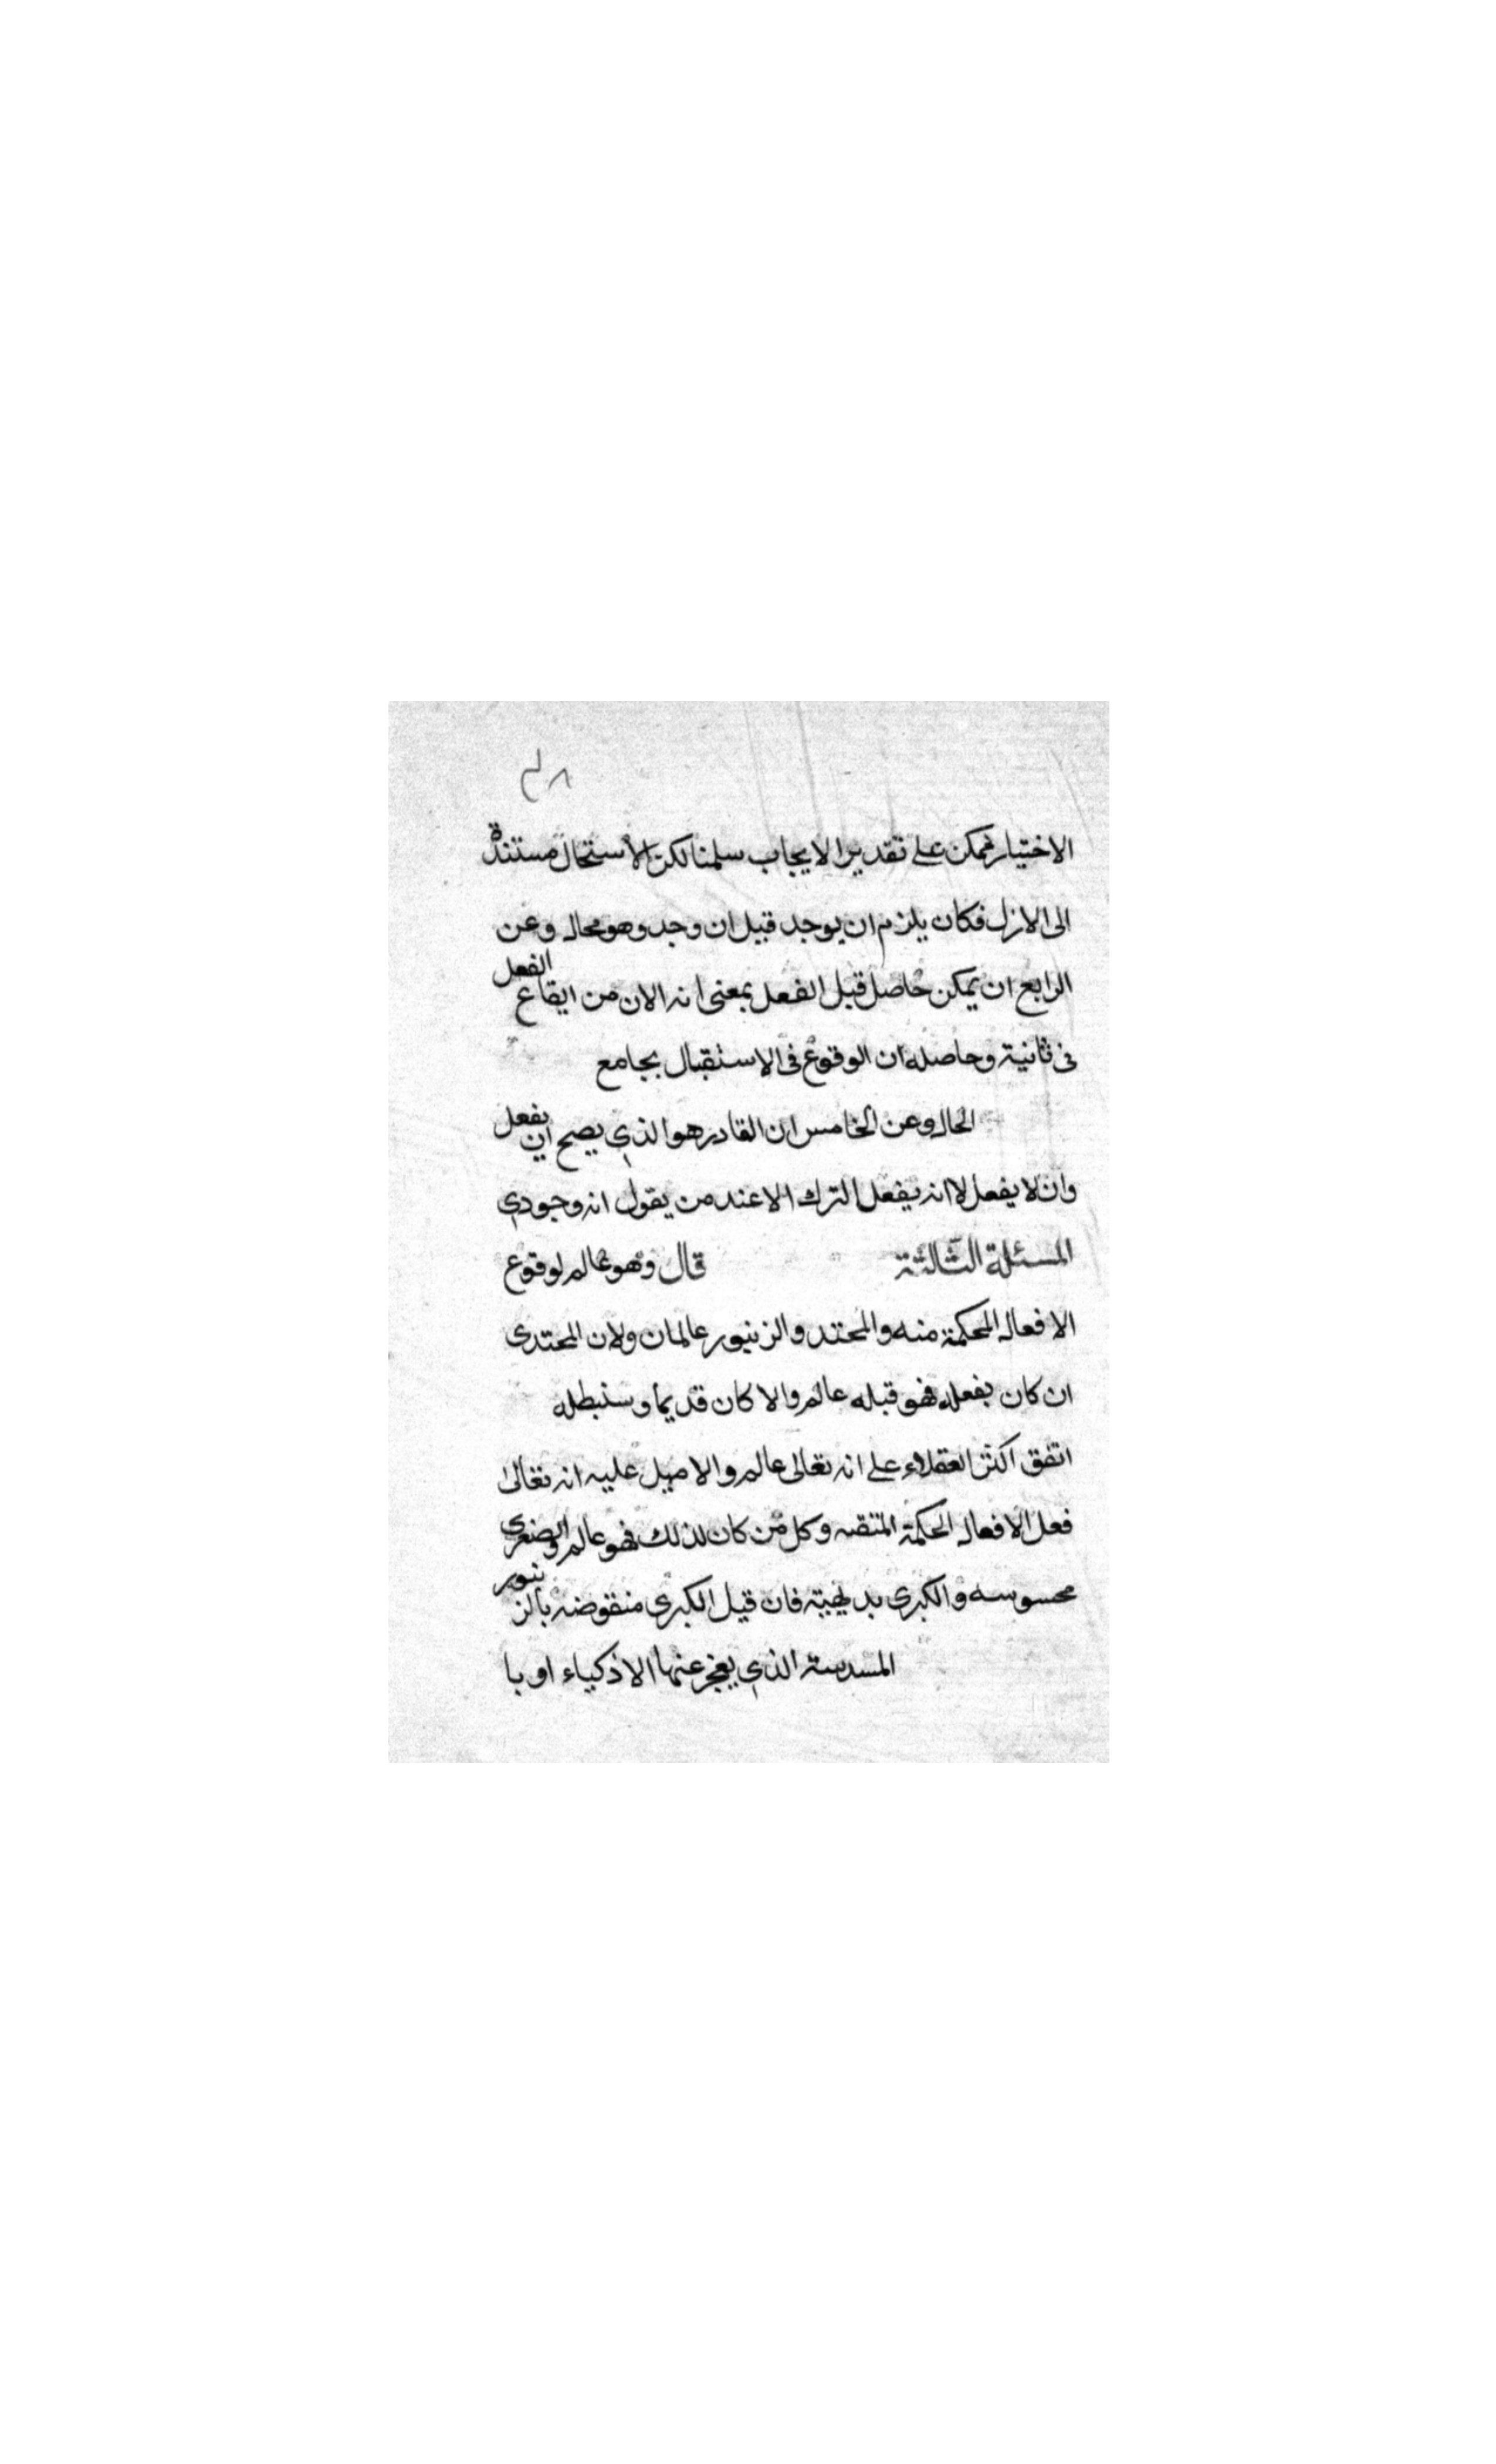 الاختيار ممكن على تقدير الايجاب سلمنا لكن الاستحال مستندة
الى الازل فكان يلزم ان يوجد قبل ان وجد وهو محال وعن
الرابع ان يمكن حاصل قبل الفعل بمعنى انه الان من ايقاع الفعل
فى ثانية وحاصله ان الوقوع فى الاستقبال بجامع
الحال وعن الخامس ان القادر هو الذي يصح ان يفعل
وان لا يفعل لا انه يفعل الترك الا عند من يقول انه وجودي
المسئلة الثالثة قال وهو عالم لوقوع
الافعال المحكمة منه والمحتد والزنبور عالمان ولان المحتدى
ان كان بفعله فهو قبله عالم والا كان قديما وسنبطله
اتفق اكثر العقلاء على انه تعالى عالم والاصل عليه انه تعالى
فعل الافعال المحكمة المتقنه وكل من كان لذلك فهو عالم والصغرى
محسوسه والكبرى بديهية فان قيل الكبرى منقوضه بالزنبور
المسدسة الذي يعجز عنها الاذكياء او با